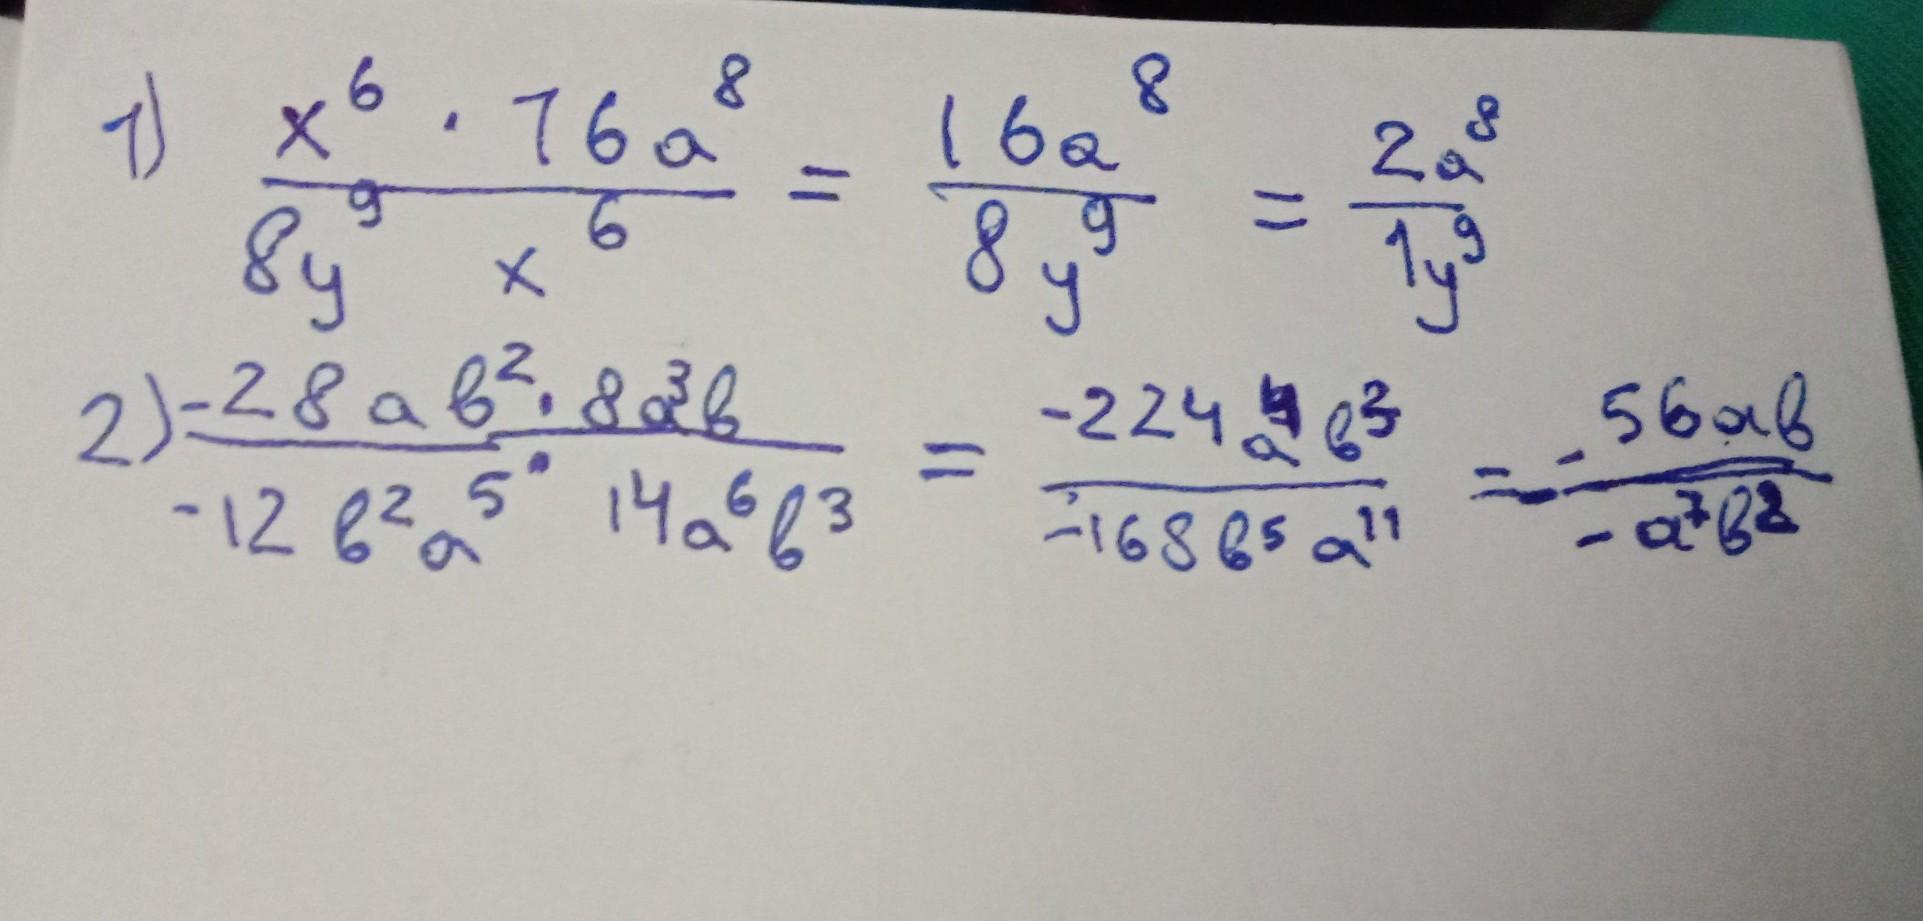 1) x⁶ · 16a⁸ / 8y⁹ x⁶ = 16a⁸ / 8y⁹ = 2a⁸ / 1y⁹
2) -28ab² · 8a³b / -12b²a⁵ · 14a⁶b³ = -224a⁴b³ / -168b⁵a¹¹ = -56ab / -a⁷b²